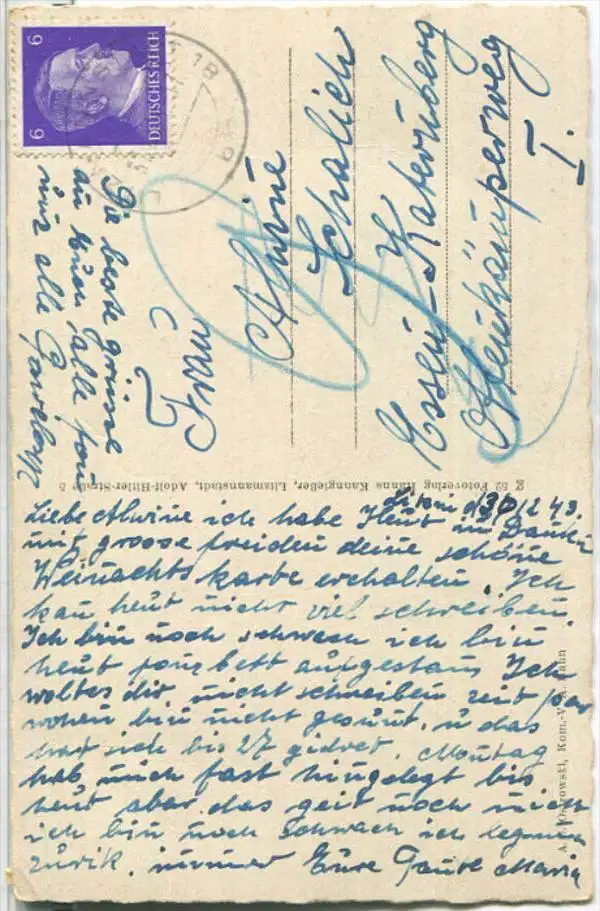 6 DEUTSCHES REICH 6
Die beste grüsse
an euer alle fon
uns alle
Frau
Alwine
Schalich
Essen-Katernberg
I.
g 52 Fotoverlag Hanns Kanngießer, Litzmannstadt, Adolf-Hitler-Straße 5
d 30/12 43.
Liebe Alwine ich habe Heut im Danken
mit groose freiden deine schöne
Weinachts karte erhalten. Ich
kan heut nicht viel schreiben.
Ich bin noch schwach ich bin
heut fonz bett aufgestans Ich
woltes dir nicht schreiben zeit par
wohen bin nicht gesunt. u das
hat sich bis 27 Montag
hab mich fast hingelegt bis
heut aber das geit noch nich
ich bin noch schwach ich
zurik. immer Eure Tante Maria
Kom.-